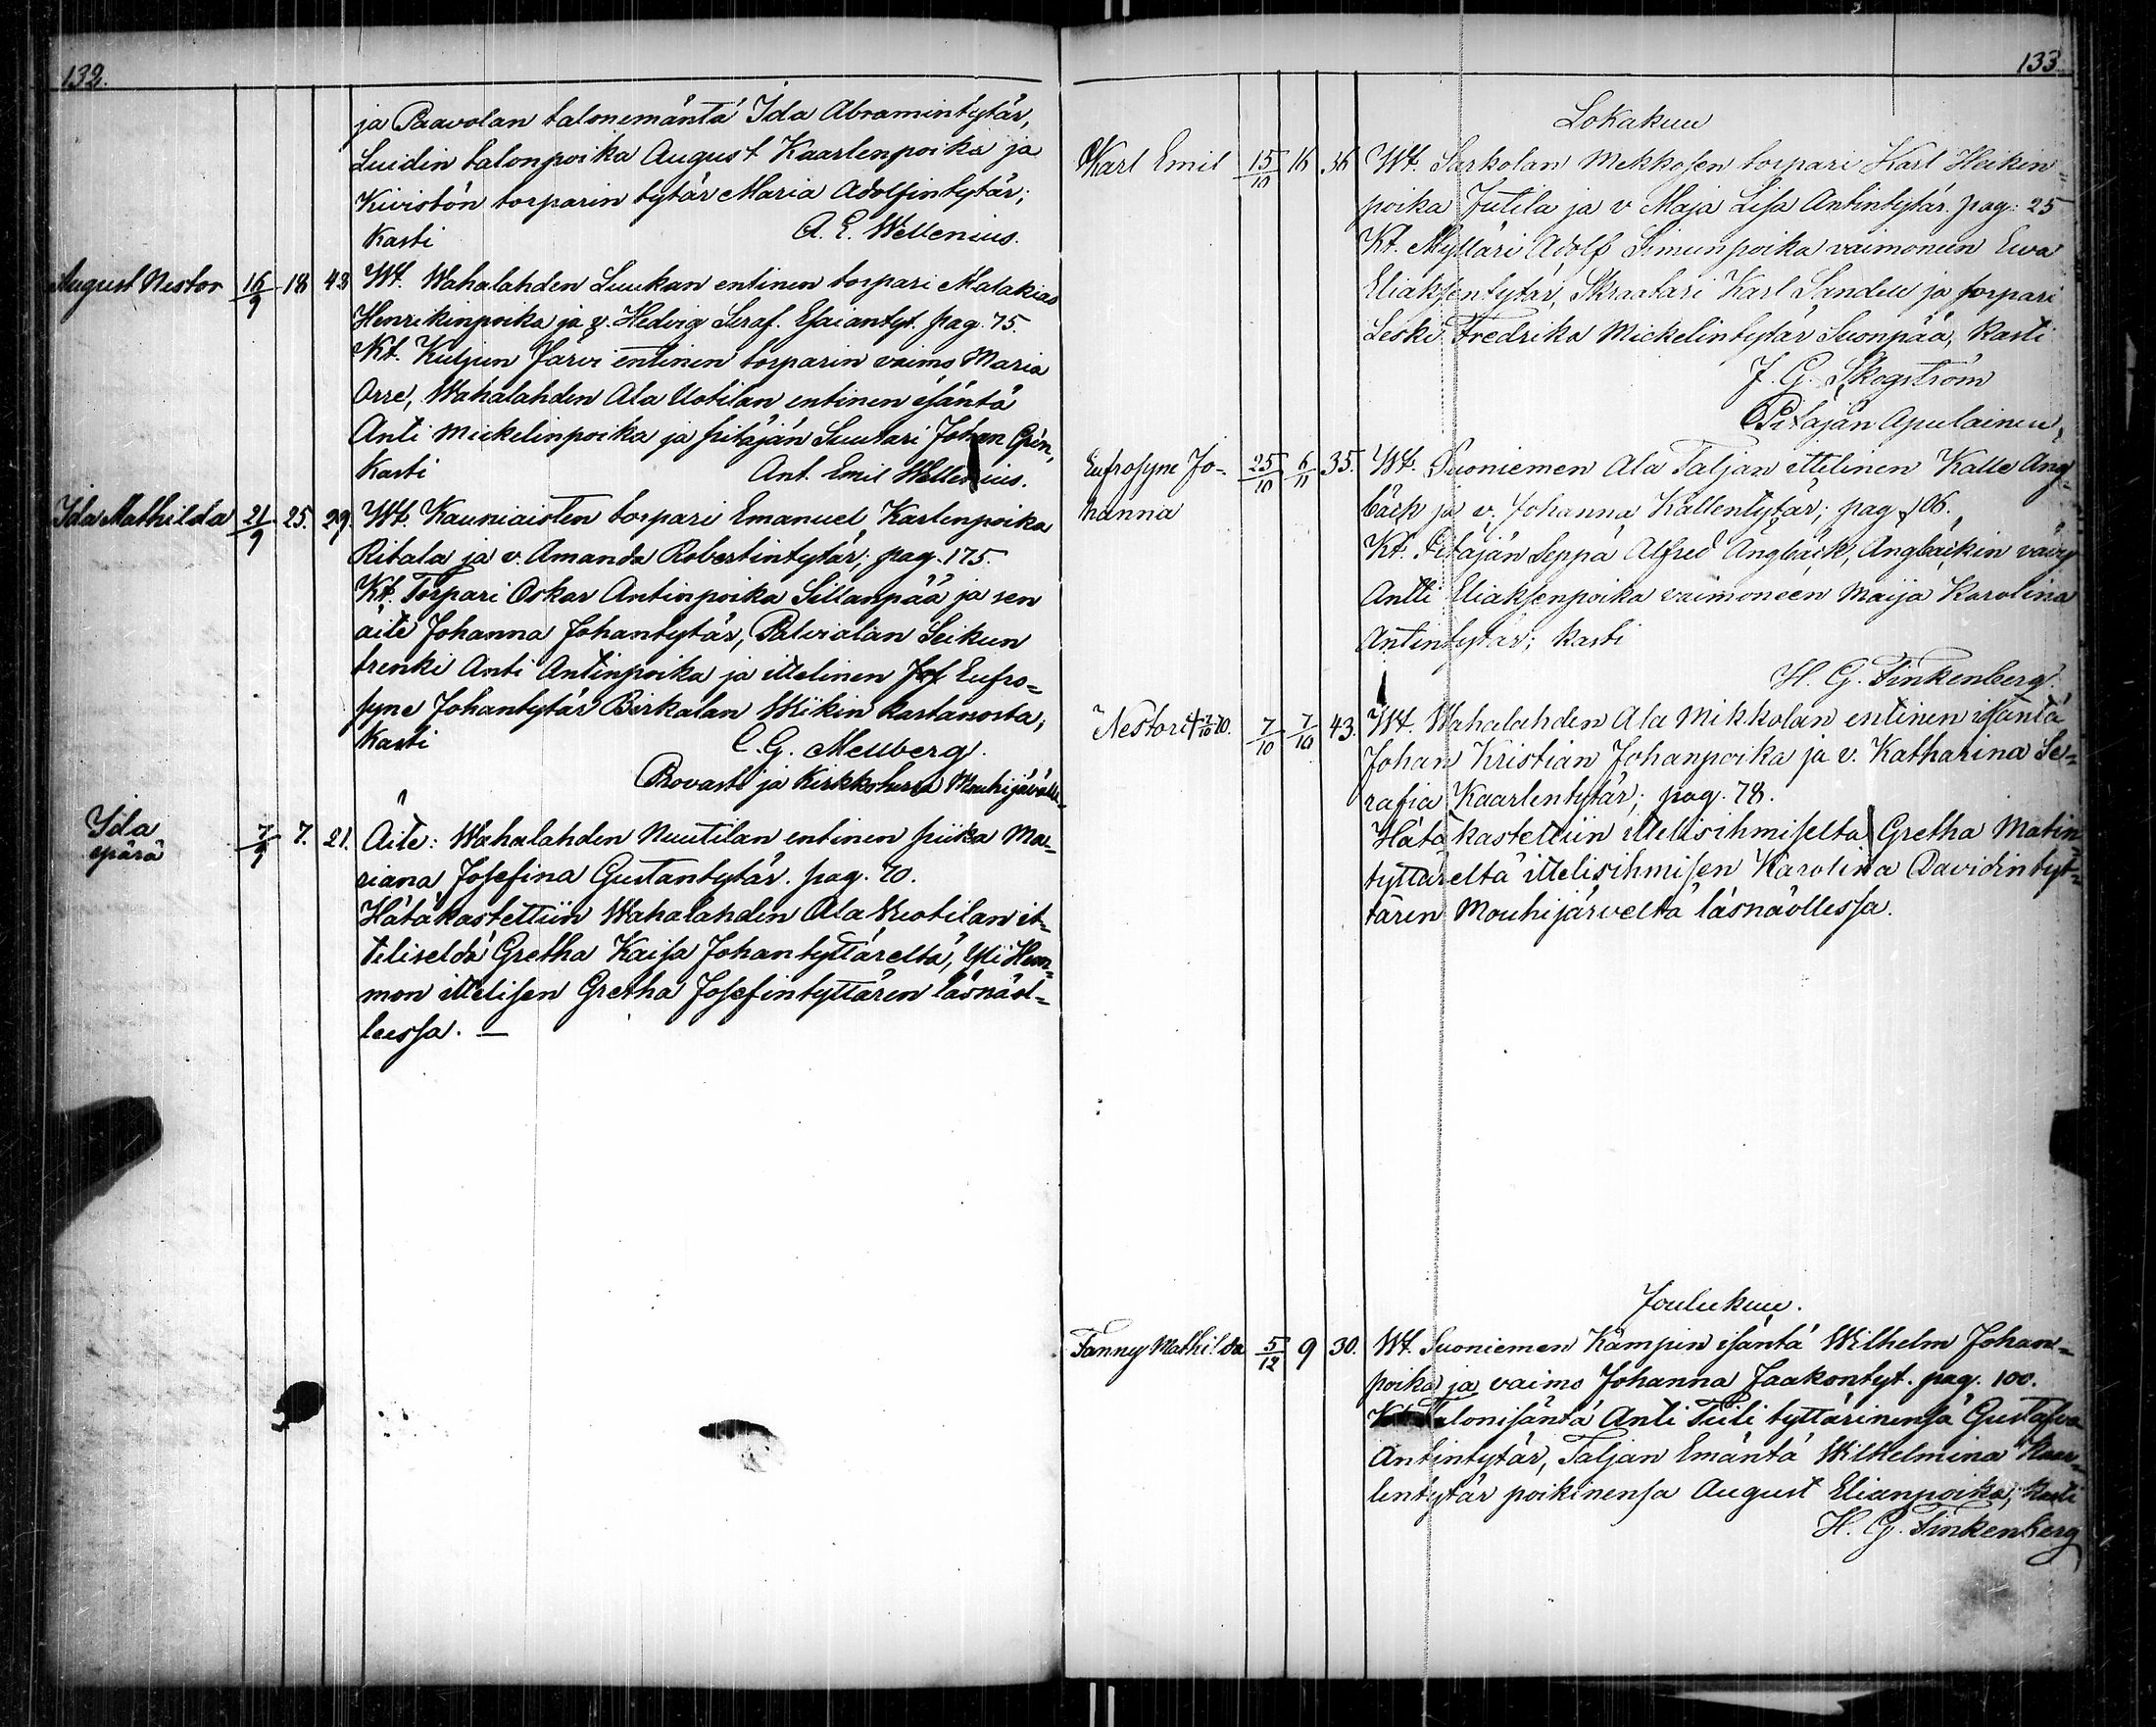 132.
ja Paavolan talonemäntä Ida Abramintytär,
Luidin talonpoika August Kaarlenpoika ja
Kivistön torparin tytär Maria Adolfintytär;
Kasti A. E. Wellenius.
August Nestor 16/9 18 43 Wt. Wahalahden Luukan entinen torpari Malakias
Henrikinpoika ja v. Hedvig Seraf. Esaiantyt. pag. 75.
Kt. Kuljun Järvi entinen torparin vaimo Maria
Orre, Wahalahden Ala Uotilan entinen isäntä
Anti Mickelinpoika ja pitäjän Suutari Johan Grén,
Kasti Ant. Emil Wellenius.
Ida Mathilda 21/9 25. 29. Wt. Kauniaisten torpari Emanuel Karlenpoika
Ritala ja v. Amanda Robertintytär; pag. 175.
Kt. Torpari Oskar Antinpoika Sillanpää ja sen
äite Johanna Johantytär, Palvialan Seikun
trenki Anti Antinpoika ja ittelinen Eufro=
syne Johantytär Birkalan Wiikin kartanosta;
Kasti C. G. Mellberg.
Provasti ja Kirkkoherra
Ida 7/9 7. 21. Äite: Wahalahden Nuutilan entinen piika Ma=
epärä riana Josefina Gustantytär. pag. 70.
Hätäkastettiin Wahalahden Ala Wuotilan it=
teliseldä Gretha Kaisa Johantyttäreltä, Yli Hem=
mon ittelisen Gretha Josefintyttären läsnäol=
lussa. —
133.
Lokakuu
Karl Emil 15/10 16 36 Wt. Sarkolan Mekkosen torpari Karl Heikin=
poika Jutila ja v Maja Lisa Antintytär. pag: 25
Kt. Mylläri Adolf Simunpoika vaimoneen Ewa
Eliaksentytär, Skraatari Karl Sandell ja torpari
Leski Fredrika Mickelintytär Suonpää, Kasti
J. G. Skogström
Pitäjän Apulainen,
Eufrosyne Jo= 25/10 6/11 35. Wt. Suoniemen Ala Taljan ittelinen Kalle Äng=
hanna bäck ja v. Johanna Kallentytär; pag 106.
Kt. Pitäjän Seppä Alfred Ängbäck, Ängbäckin vävy
Antti Eliaksenpoika vaimoneen Maija Karolina
Antintytär; kasti
H. G. Finkenberg
Nestori 7/10 7/10 43. Wt. Wahalahden Ala Mikkolan entinen isäntä
Johan Kristian Johanpoika ja v. Katharina Se=
rafia Kaarlentytär; pag. 78.
Hätäkastettiin ittelisihmiselta Gretha Matin=
tyttäreltä ittelisihmisen Karolina Davidintyt=
tären Mouhijärvelta läsnäollessa.
Joulukuu.
Fanny Mathilda 5/12 9 30. Wt. Suoniemen Kämpin isäntä Wilhelm Johan=
poika ja vaimo Johanna Jaakontyt. pag. 100.
Talonisäntä Anti Tiili tyttärinensä Gustafva
Antintytär, Taljan Emäntä Wilhelmina Kaar=
lentytär poikinensa August Elianpoika; Kasti
H. G. Finkenberg